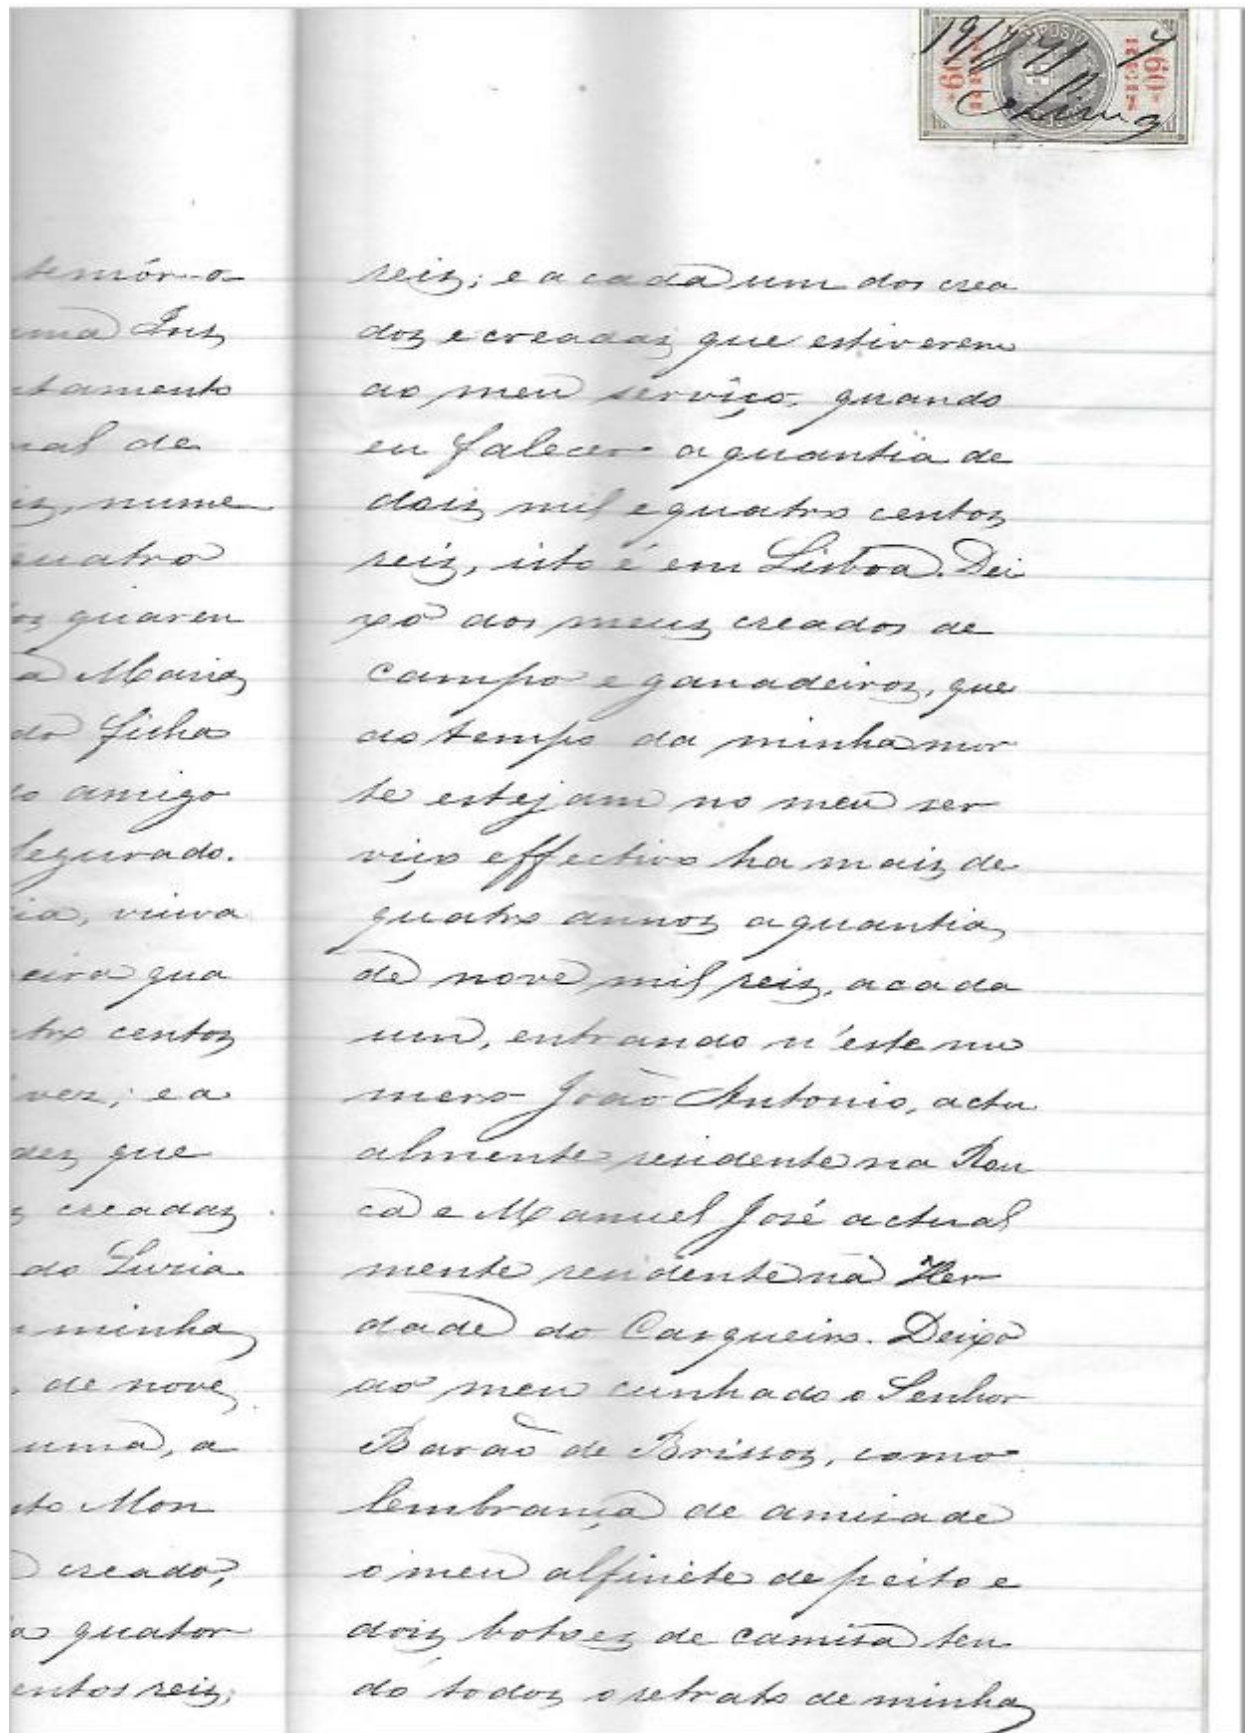 IMPOSTO
60
REIS
60
REIS
Lima
temór-o
uma Ins
stamento
nal de
is, nume
quatro
os quaren
a Maria
do filha
o amigo
legurado.
ia, viuva
eira qua
tro centos
vez; e a
des que
s creadas
do Luzia
a minha
, de nove
uma, a
nto Mon
creado,
a quator
entos reis;
reis; e a cada um dos crea
dos e creadas que estiverem
ao meu serviço, quando
eu falecer a quantia de
dois mil e quatro centos
reis, isto é em Lisboa. Dei
xo aos meus creados de
campo e ganadeiros, que
ao tempo da minha mor
te estejam no meu ser
viço effectivo ha mais de
quatro annos a quantia
de nove mil reis, a cada
um, entrando n'este nu
mero João Antonio, actu
almente residente na Rou
ca e Manuel José actual
mente residente na Her
dade do Carqueiro. Deixo
ao meu cunhado o Senhor
Barão de Brissos, como
lembrança de amisade
o meu alfinete de peito e
dois botoes de camisa ten
do todos o retrato de minha